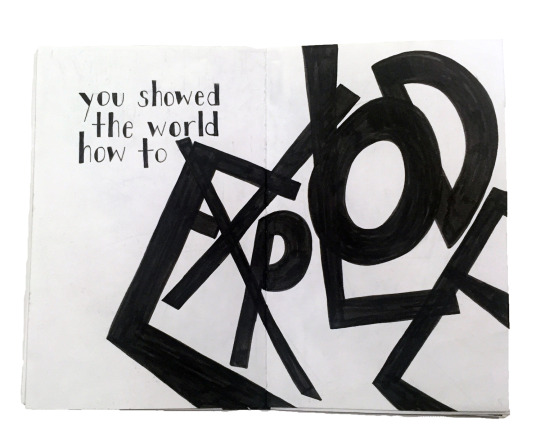 you showed
the world
how to
EXPLODE